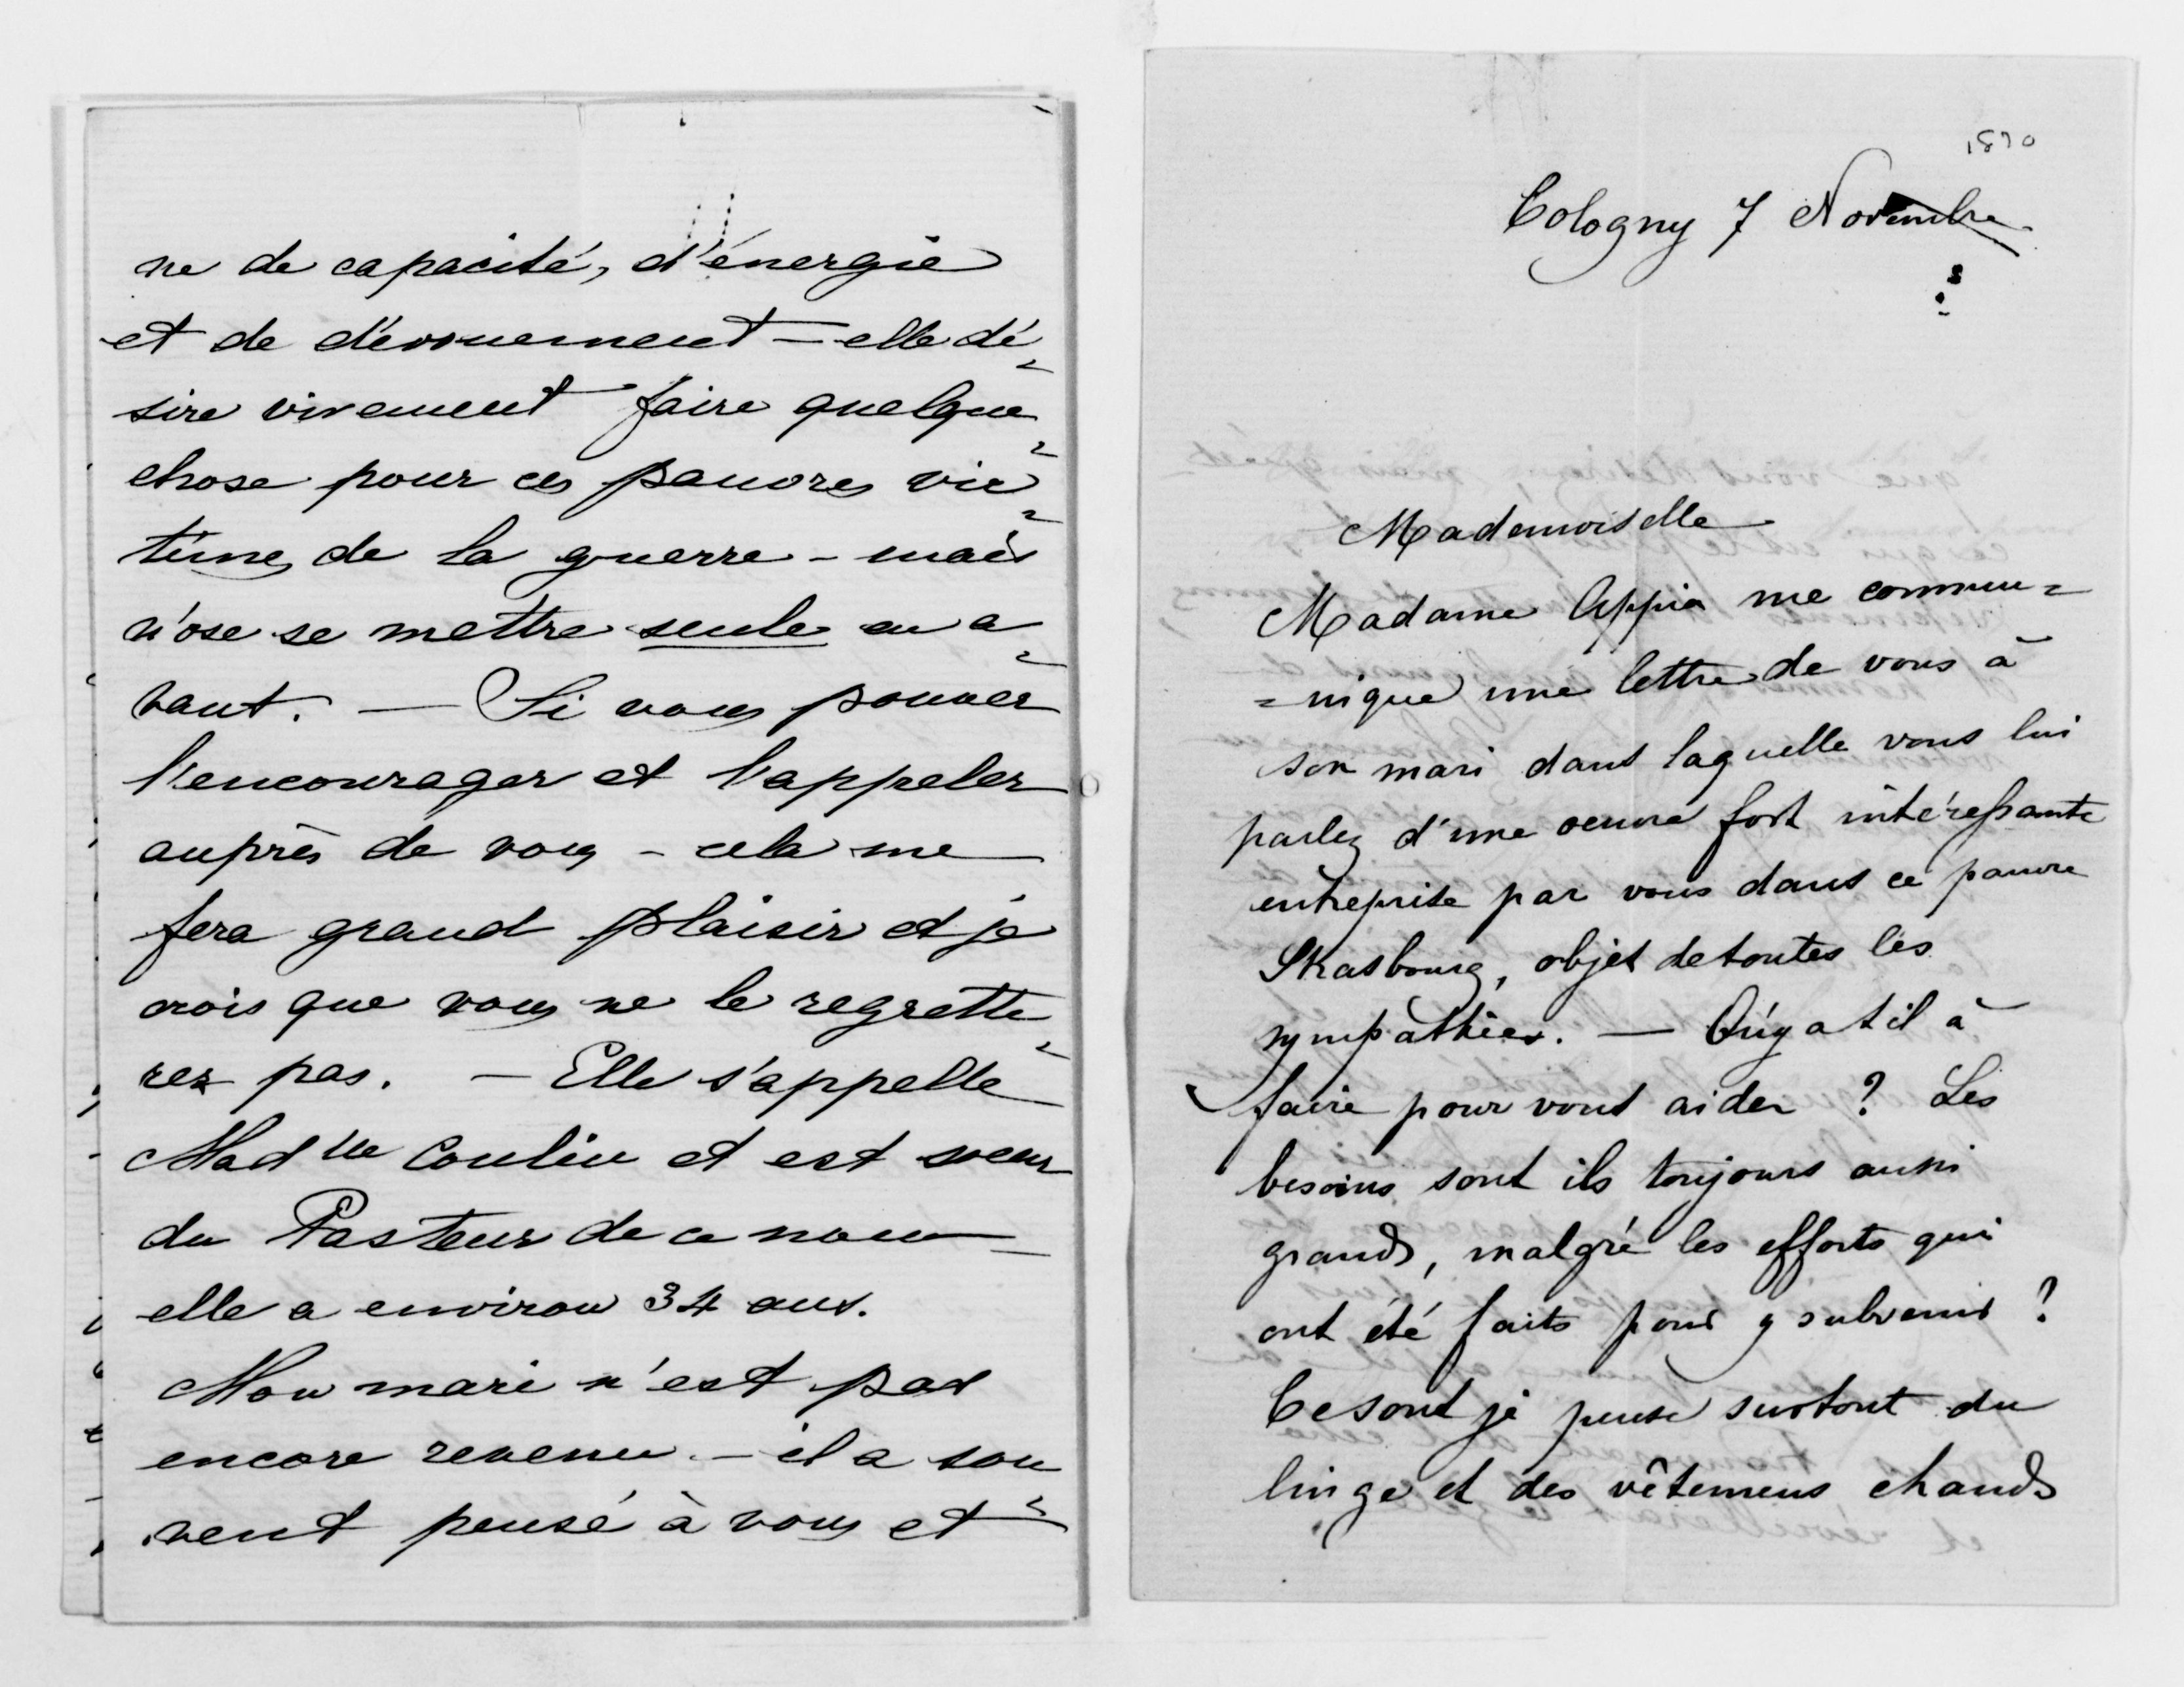 ne de capacité, d'énergie
et de dévouement — elle dé-
sire vivement faire quelque
chose pour ces pauvres vic-
times de la guerre - mais
n'ose se mettre seule en a-
vant. — Si vous pouvez
l'encourager et l'appeler
auprès de vous - cela me
fera grand plaisir et je
crois que vous ne le regrette-
rez pas. — Elle s'appelle
Mad lle Coulin et est soeur
du Pasteur de ce nom —
elle a environ 34 ans.
Mon mari n'est pas
encore revenu. - il a sou-
vent pensé à vous et
1870
Cologny 7 Novembre
Mademoiselle
Madame Appia me commu=
=nique une lettre de vous à
son mari dans laquelle vous lui
parlez d'une oeuvre fort intéressante
entreprise par vous dans ce pauvre
Strasbourg, objet de toutes les
sympathies. — Qu'y a t il à
faire pour vous aider ? Les
besoins sont ils toujours aussi
grands, malgré les efforts qui
ont été faits pour y subvenir ?
Ce sont je pense surtout du
linge et des vêtemens chauds